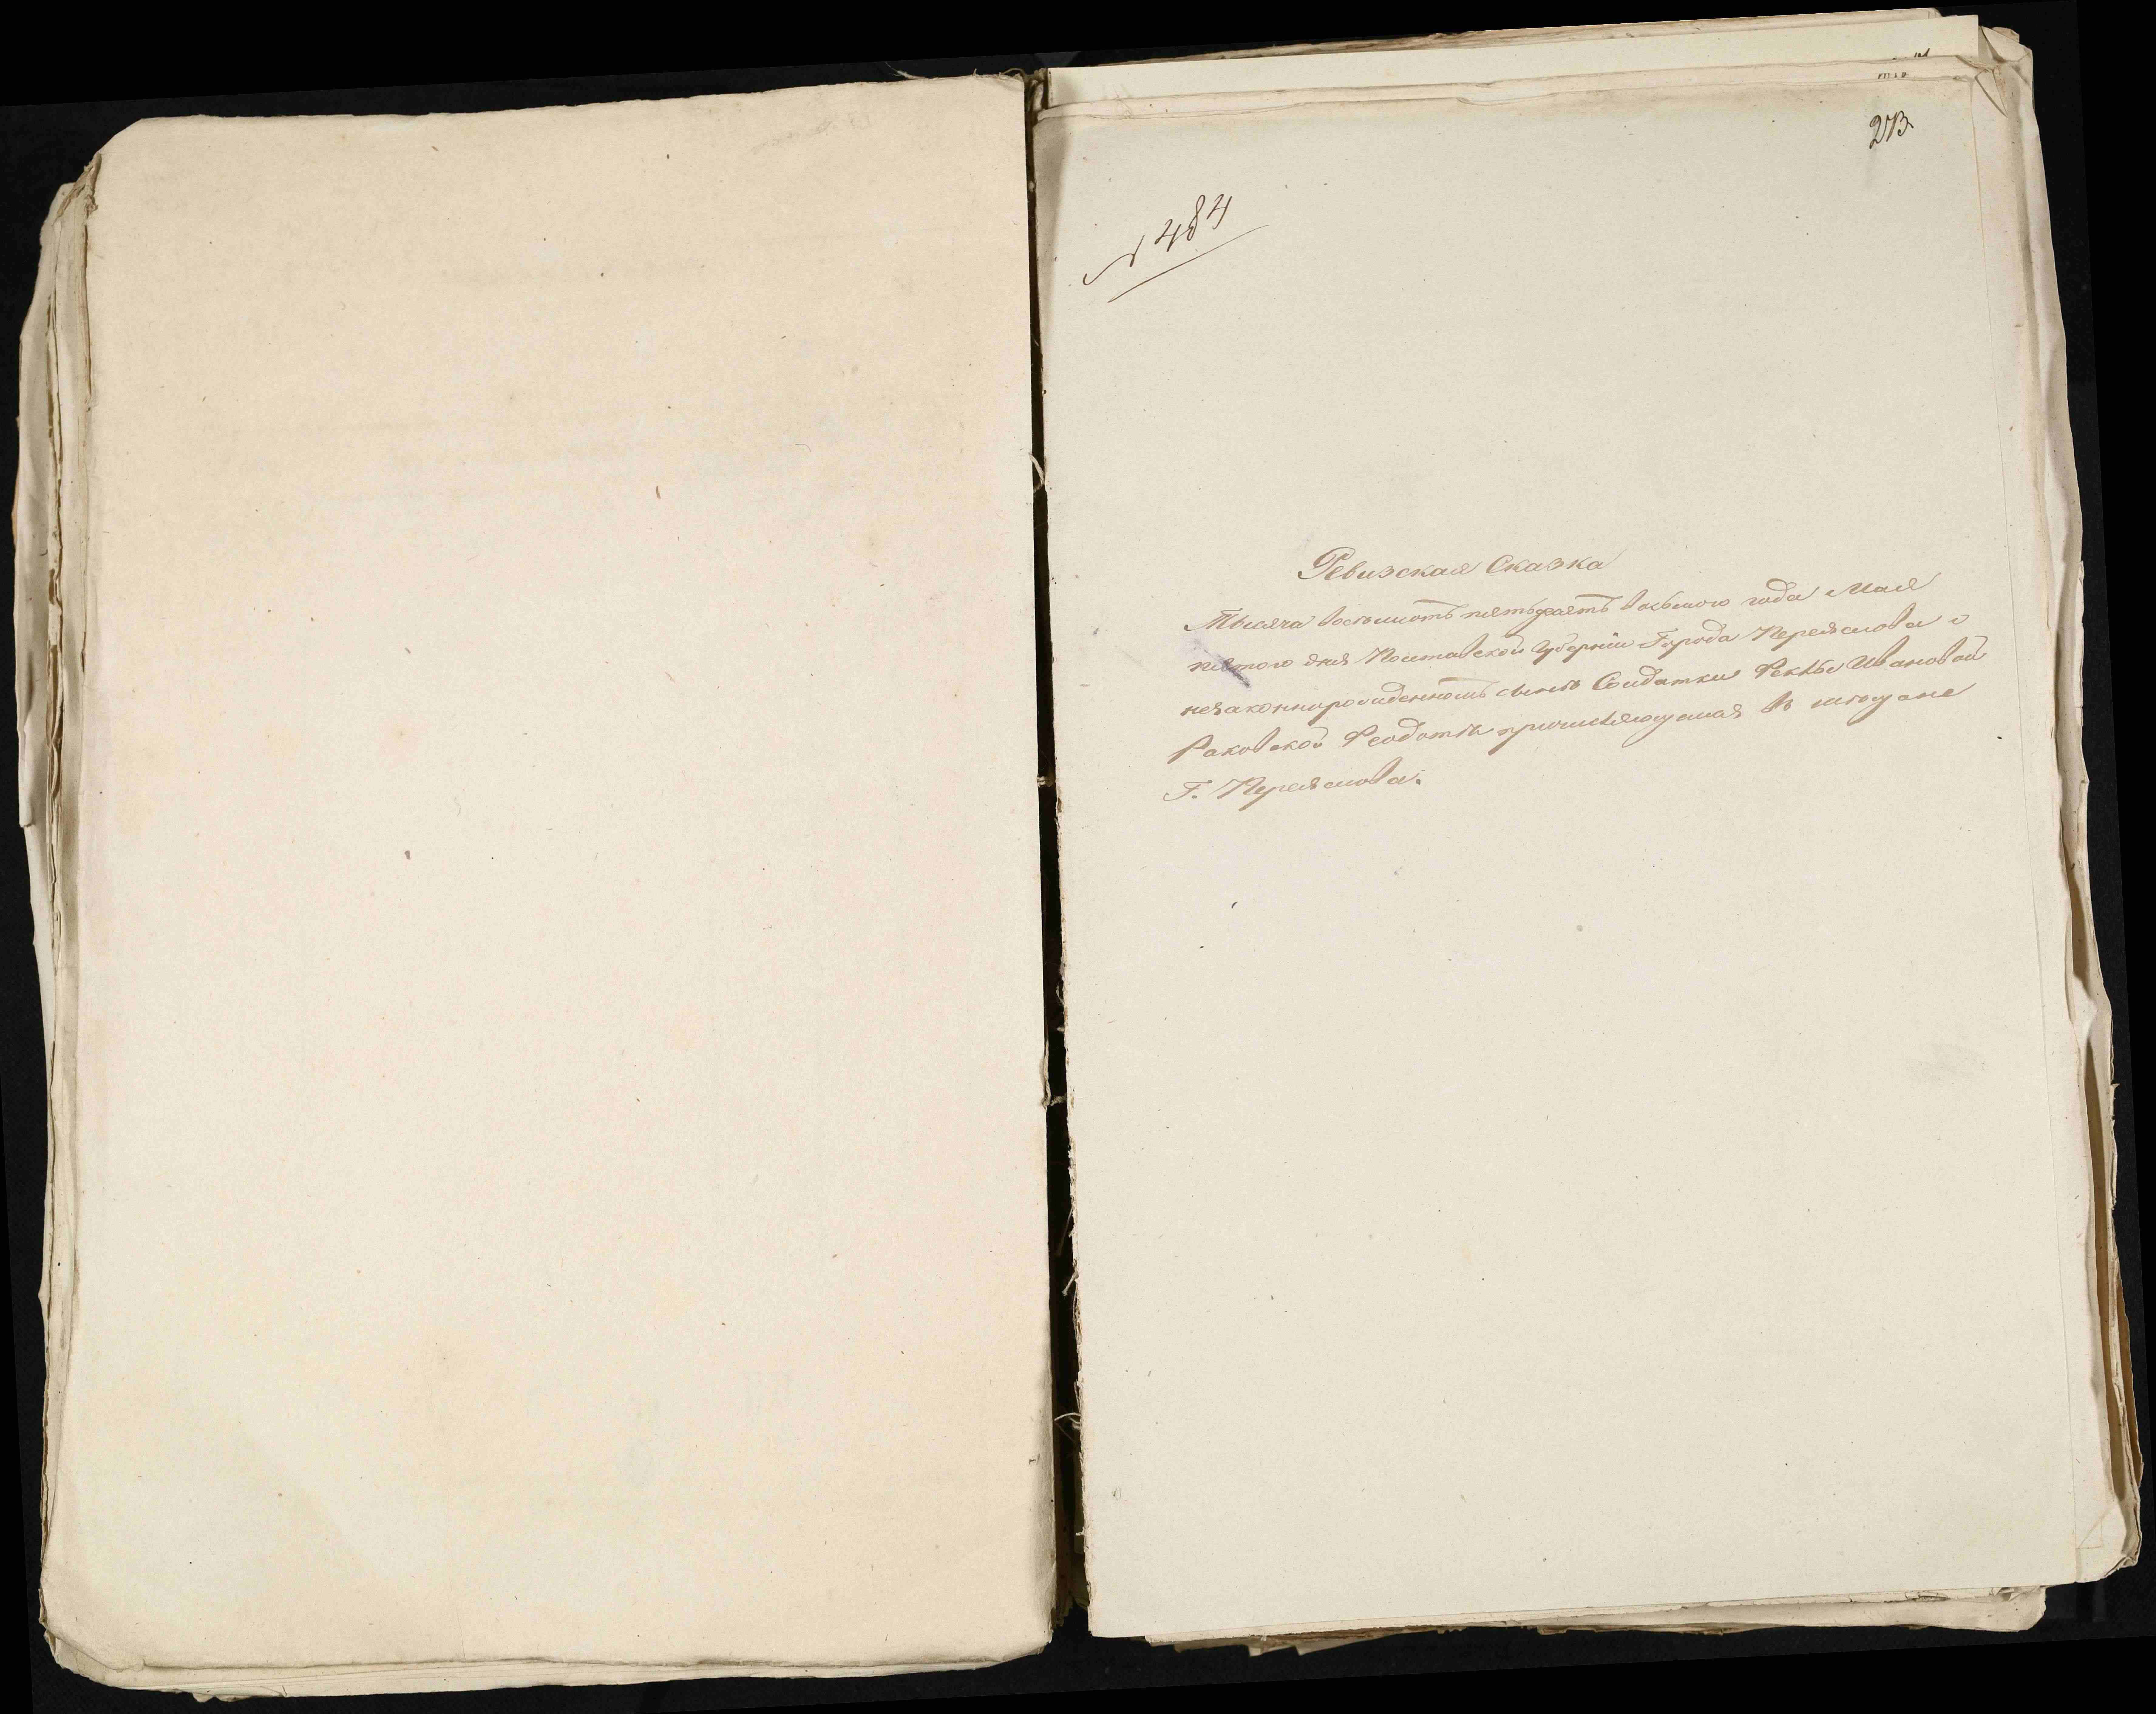 273.
№ 484
Ревизская Сказка
Тысяча восемьсотъ пятьдесятъ восьмого года Мая
пятого дня Полтавской Губерніи Города Переяслова о
незаконнорожденномъ сынѣ Солдатки Феклы Ивановой
Раковской Феодотѣ причисляющемся въ мещане
Г. Переяслова.